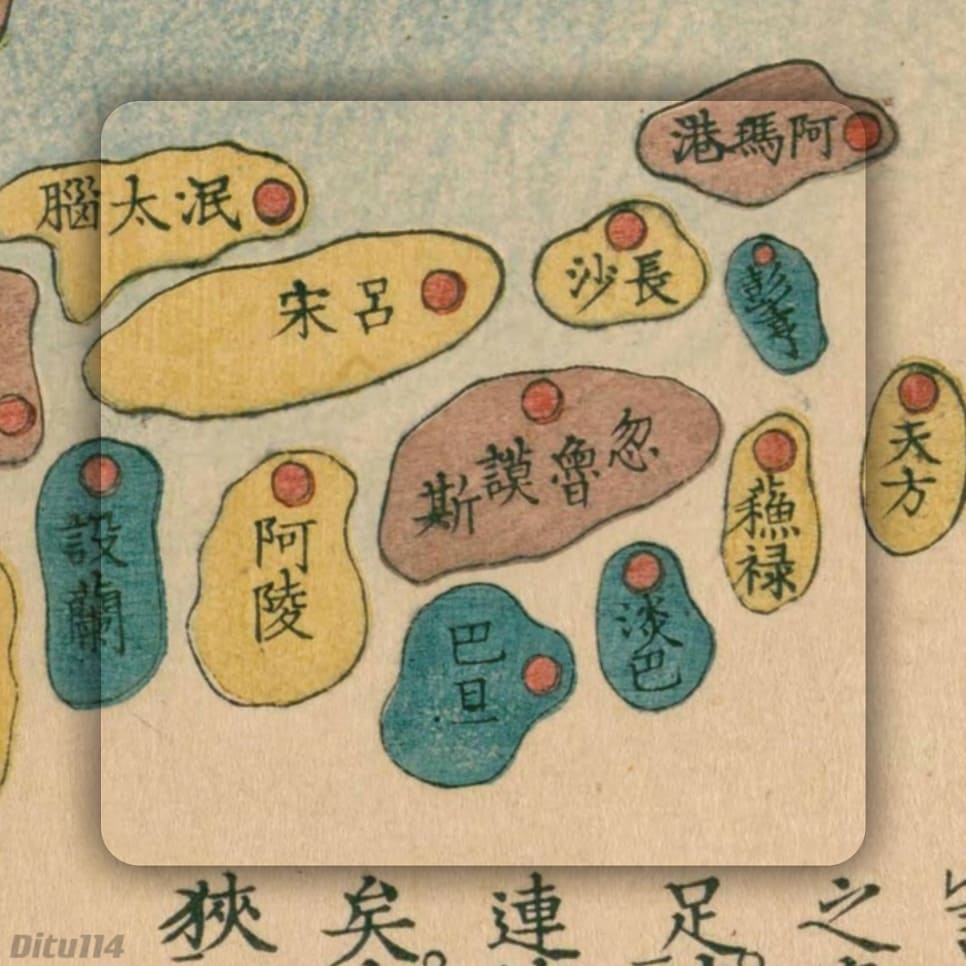 阿瑪港
泯太腦
呂宋
長沙
彭亨
忽魯謨斯
天方
蘓禄
淡巴
巴旦
阿陵
設蘭
之
足
連
矣
狹
Ditu114